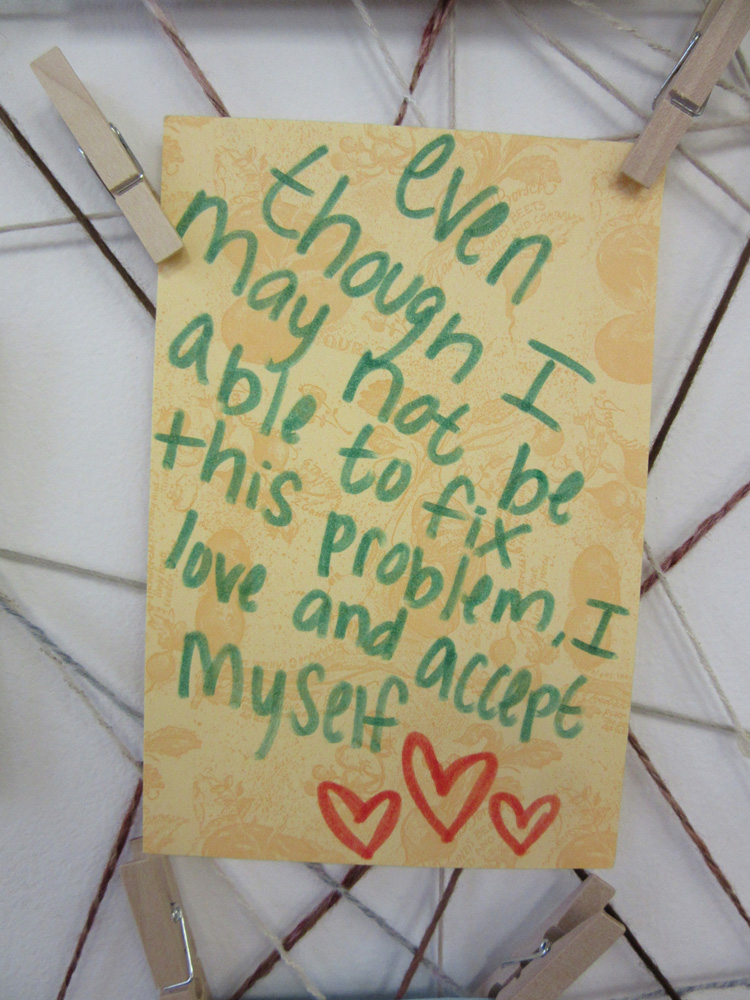 even
though I
may not be
able to fix
this problem, I
love and accept
myself